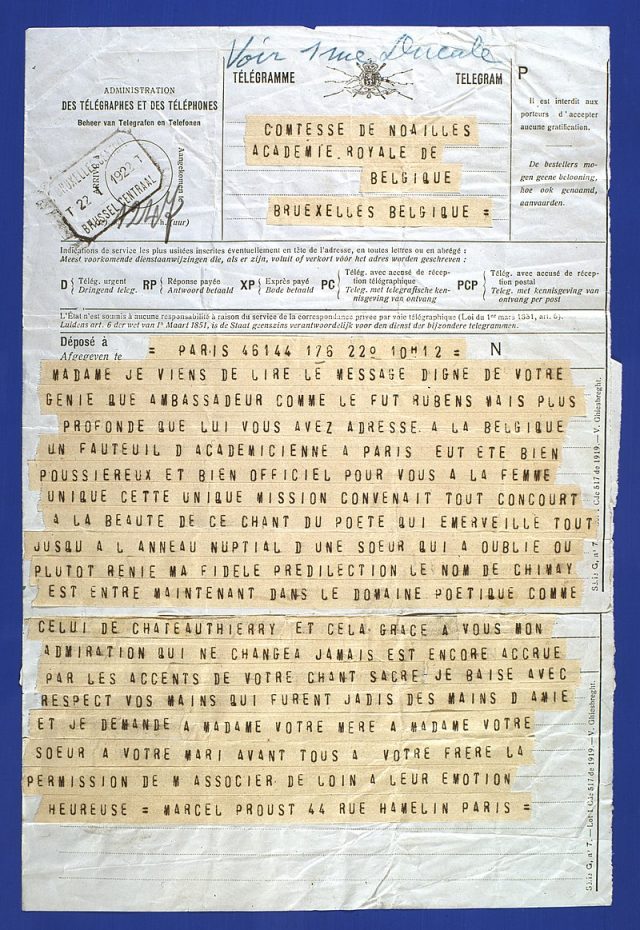 Voir 1 rue Ducale
TÉLÉGRAMME TELEGRAM
P
ADMINISTRATION
DES TÉLÉGRAPHES ET DES TÉLÉPHONES
Beheer van Telegrafen en Telefonen
Il est interdit aux
porteurs d'accepter
aucune gratification.
De bestellers mo-
gen geene belooning,
hoe ook genaamd,
aanvaarden.
COMTESSE DE NOAILLES
ACADEMIE ROYALE DE
BELGIQUE
BRUXELLES BELGIQUE =
T 22 1922 T
BRUSSEL CENTRAAL
(uur)
Indications de service les plus usitées inscrites éventuellement en tête de l'adresse, en toutes lettres ou en abrégé :
Meest voorkomende dienstaanwijzingen die, als er zijn, voluit of verkort vóór het adres worden geschreven :
D Télég. urgent Dringend teleg. RP Réponse payée Antwoord betaald XP Exprès payé Bode betaald PC Télég. avec accusé de récep-tion télégraphique Teleg. met telegrafische ken-nisgeving van ontvang PCP Télég. avec accusé de récep-tion postal Teleg. met kennisgeving van ontvang per post
L'État n'est soumis à aucune responsabilité à raison du service de la correspondance privée par voie télégraphique (Loi du 1er mars 1851, art. 6).
Luidens art. 6 der wet van 1n Maart 1851, is de Staat geenszins verantwoordelijk voor den dienst der bijzondere telegrammen.
Déposé à
Afgegeven te
= PARIS 46144 176 22 10H12 = N
MADAME JE VIENS DE LIRE LE MESSAGE DIGNE DE VOTRE
GENIE QUE AMBASSADEUR COMME LE FUT RUBENS MAIS PLUS
PROFONDE QUE LUI VOUS AVEZ ADRESSE A LA BELGIQUE
UN FAUTEUIL D ACADEMICIENNE A PARIS EUT ETE BIEN
POUSSIEREUX ET BIEN OFFICIEL POUR VOUS A LA FEMME
UNIQUE CETTE UNIQUE MISSION CONVENAIT TOUT CONCOURT
A LA BEAUTE DE CE CHANT DU POETE QUI EMERVEILLE TOUT
JUSQU A L ANNEAU NUPTIAL D UNE SOEUR QUI A OUBLIE OU
PLUTOT RENIE MA FIDELE PREDILECTION LE NOM DE CHIMAY
EST ENTRE MAINTENANT DANS LE DOMAINE POETIQUE COMME
CELUI DE CHATEAUTHIERRY ET CELA GRACE A VOUS MON
ADMIRATION QUI NE CHANGEA JAMAIS EST ENCORE ACCRUE
PAR LES ACCENTS DE VOTRE CHANT SACRE JE BAISE AVEC
RESPECT VOS MAINS QUI FURENT JADIS DES MAINS D AMIE
ET JE DEMANDE A MADAME VOTRE MERE A MADAME VOTRE
SOEUR A VOTRE MARI AVANT TOUS A VOTRE FRERE LA
PERMISSION DE M ASSOCIER DE LOIN A LEUR EMOTION
HEUREUSE = MARCEL PROUST 44 RUE HAMELIN PARIS =
Série G, n° 7. — Cde 517 de 1919. — V. Ghlesbreght.
Série G, n° 7. — Lot 1 Cde 517 de 1919. — V. Ghlesbreght.